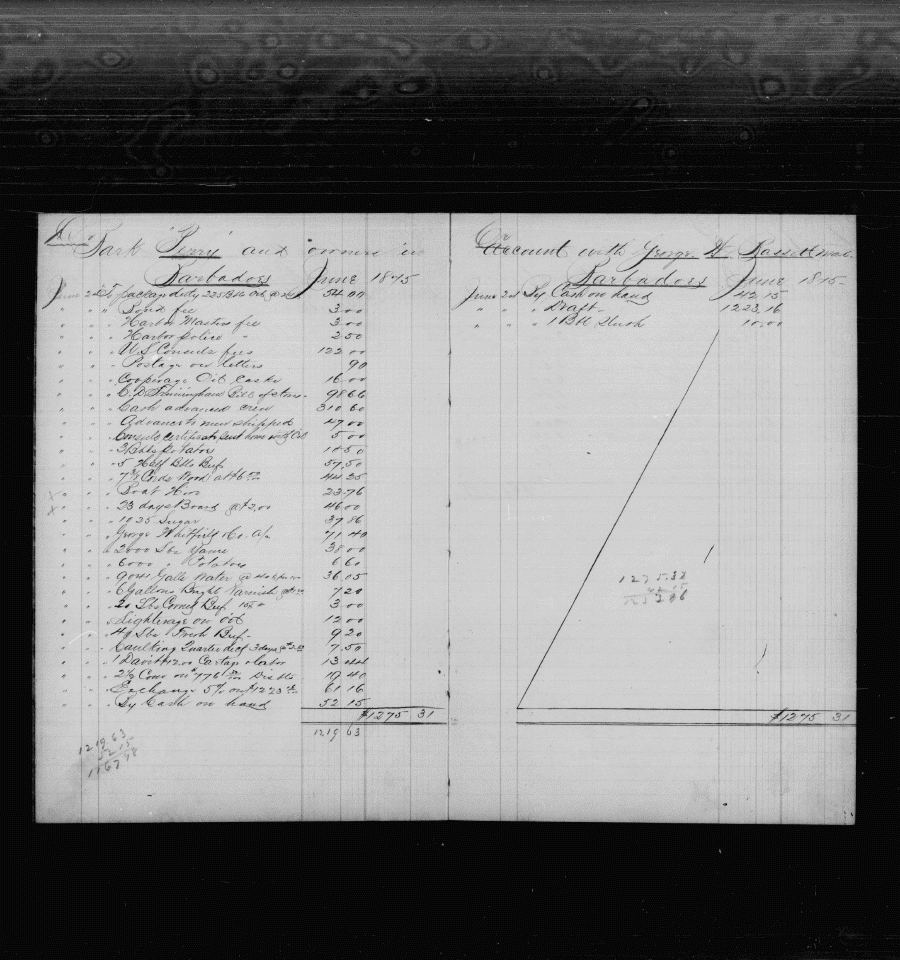 Dr Bark Perry and owners in
Barbados June 1875
June 2d To package duty 225 Bbls Oil
" " " Bond fee 3 00
" " " Harbor Masters fee 3 00
" " " Harbor police " 2 50
" " " U S Consuls fees 122 00
" " " Postage on letters 90
" " " Cooperage Oil Casks 16 00
" " " Bill of stores 98 66
" " " Cash advanced crew 310 60
" " " Advance to men shipped 47 00
" " " Consuls certificate sent home with Oil 5 00
" " " 3 Bbls potatoes 10 50
" " " 5 Half Bbls Beef 57 50
" " " 7 Cords Wood at 44 25
" " " Boat Hire 23 76
" " " 23 days Board @ $2,00 46 00
" " " 1025 Sugar 37 86
" " " George Whitfield & Co. a/c 71 40
" " " 2000 Lbs Yams 38 00
" " " 6000 " Potatoes 6 60
" " " Galls Water 36 05
" " " 6 Gallons Bright Varnish 7 20
" " " 20 Lbs Corned Beef 15 3 00
" " " Lighterage on Oil 12 00
" " " Lbs Fresh Beef 9 20
" " " Caulking Quarter deck 3 days 7 50
" " " 1 Davit 12.00 Cartage & labor 13 44
" " " 2½ Com on $776 19 40
" " " Exchange 5% on $1223 61 16
" " " By Cash on hand 52 15
$1275 31
1219 63
1219 63
52 15
Cr Account with George W Bassett
Barbados June 1875
June 2d By Cash on hand 42.15
" " " Draft 1223.16
" " " 1 Bbl Slush 10.00
$1275 31